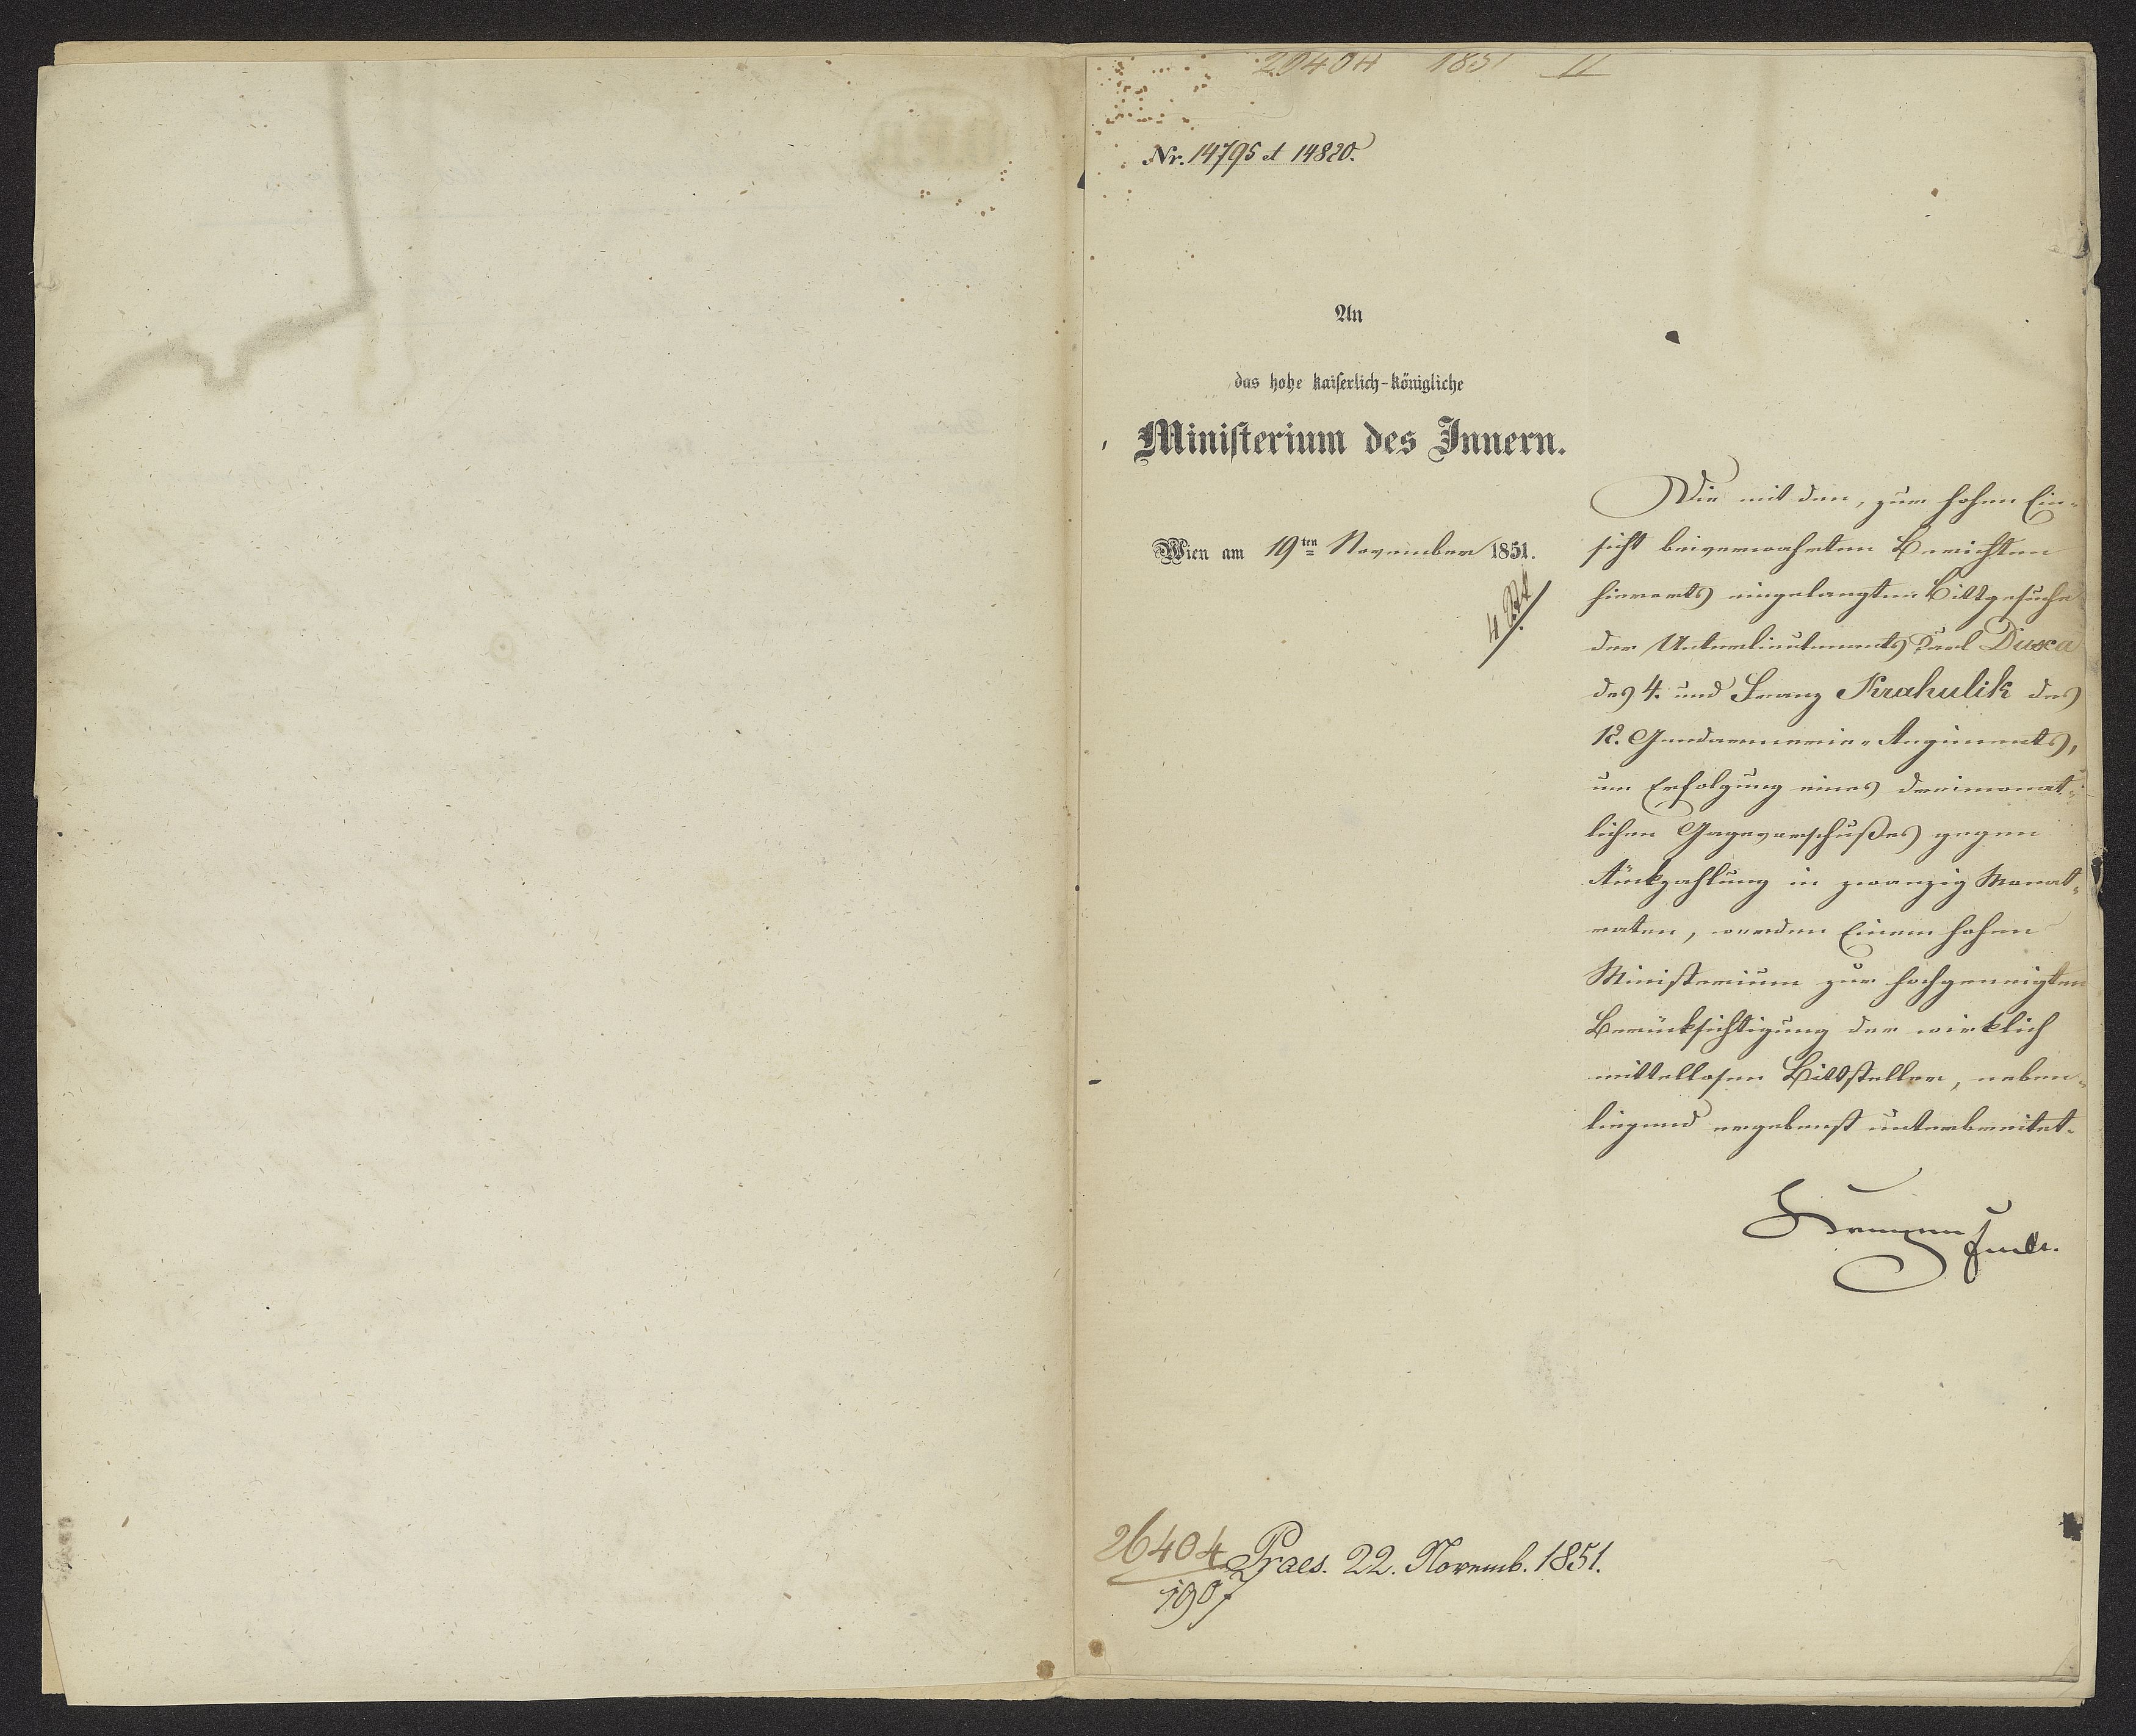 26404 1851 II
Nr. 14795 et 14820.
An
das hohe kaiserlich-königliche
Ministerium des Innern.
Wien am 19ten November 1851.
4
Die mit den, zur hohen Ein-
sicht beiverwahrten Berichten
hierorts eingelangten Bittgesuche
der Unterlieutenants Karl Duxa
des 4. und Franz Krahulik des
12. Gendarmerie-Regiments,
um Erfolgung eines dreimonat-
lichen Gagevorschußes gegen
Rückzahlung in zwanzig Monat-
raten, werden Einem hohen
Ministerium zur hochgeneigten
Berücksichtigung der wirklich
mittellosen Bittsteller, neben-
liegend ergebenst unterbreitet.
Kempen
26404 Praes. 22. Novemb. 1851.
1907